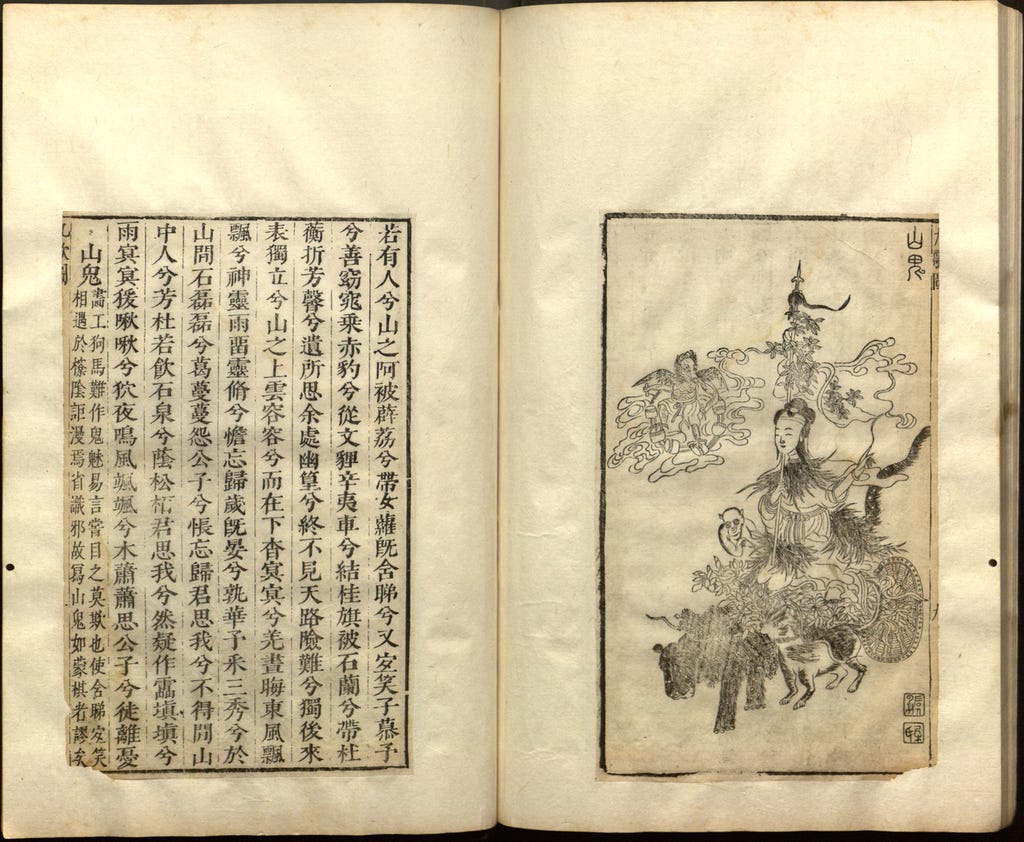 山鬼
若有人兮山之阿被薜荔兮帶女蘿旣含睇兮又宐笑子慕予
兮善窈窕乘赤豹兮從文貍辛夷車兮結桂旗被石蘭兮帶杜
蘅折芳馨兮遺所思余處幽篁兮終不見天路險難兮獨後來
表獨立兮山之上雲容容兮而在下杳冥冥兮羌晝晦東風飄
飄兮神靈雨畱靈脩兮憺忘歸歲旣晏兮孰華予采三秀兮於
山間石磊磊兮葛蔓蔓怨公子兮悵忘歸君思我兮不得閒山
中人兮芳杜若飲石泉兮蔭松栢君思我兮然疑作靁塡塡兮
雨冥冥猨啾啾兮狖夜鳴風颯颯兮木蕭蕭思公子兮徒離憂
山鬼
畵工狗馬難作鬼魅易言嘗目之莫欺也使含睇宐笑
相遇於篠陰詎漫焉省識邪故寫山鬼如蒙棋者謬矣